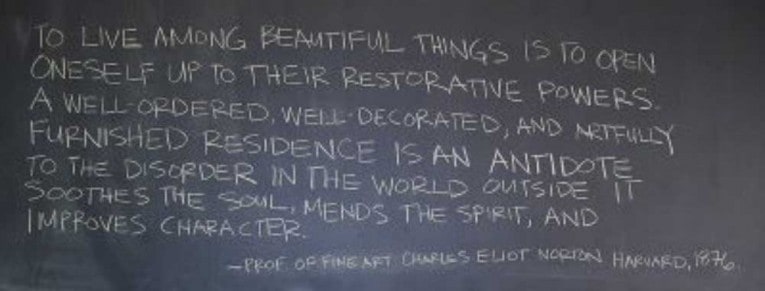 TO LIVE AMONG BEAUTIFUL THINGS IS TO OPEN
ONESELF UP TO THEIR RESTORATIVE POWERS.
A WELL-ORDERED, WELL-DECORATED, AND ARTFULLY
FURNISHED RESIDENCE IS AN ANTIDOTE
TO THE DISORDER IN THE WORLD OUTSIDE IT
SOOTHES THE SOUL, MENDS THE SPIRIT, AND
IMPROVES CHARACTER.
—PROF. OF FINE ART CHARLES ELIOT NORTON HARVARD, 1876.